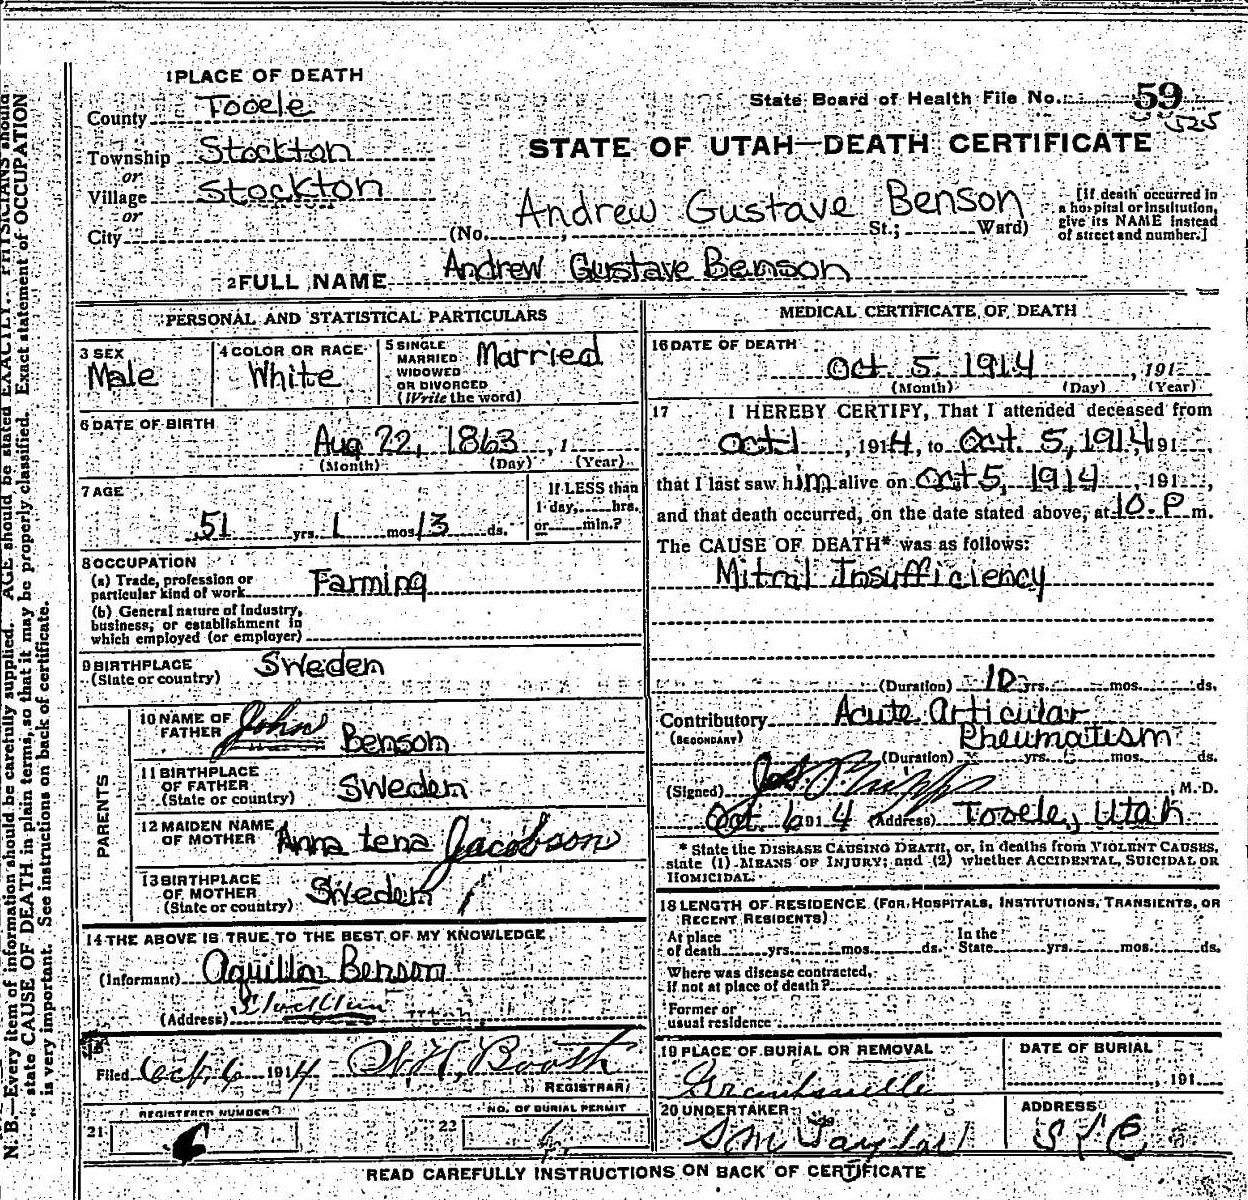 1 PLACE OF DEATH
County Tooele
State Board of Health File No. 59
525
Township Stockton
or
Village Stockton
or
City
STATE OF UTAH—DEATH CERTIFICATE
Andrew Gustave Benson
(No. ; St.; Ward)
[If death occurred in
a hospital or institution,
give its NAME instead
of street and number.]
2 FULL NAME Andrew Gustave Benson
PERSONAL AND STATISTICAL PARTICULARS
3 SEX
Male
4 COLOR OR RACE
White
5 SINGLE
MARRIED
WIDOWED
OR DIVORCED
(Write the word)
Married
6 DATE OF BIRTH
Aug 22, 1863, 1
(Month) (Day) (Year)
7 AGE
51 yrs. 1 mos. 13 ds.
If LESS than
1 day, hrs.
or min.?
8 OCCUPATION
(a) Trade, profession or
particular kind of work Farming
(b) General nature of Industry,
business, or establishment in
which employed (or employer)
9 BIRTHPLACE
(State or country) Sweden
PARENTS
10 NAME OF
FATHER John Benson
11 BIRTHPLACE
OF FATHER
(State or country) Sweden
12 MAIDEN NAME
OF MOTHER Anna Lena Jacobson
13 BIRTHPLACE
OF MOTHER
(State or country) Sweden
14 THE ABOVE IS TRUE TO THE BEST OF MY KNOWLEDGE
(Informant) Aquilla Benson
(Address) Stockton Utah
15
Filed Oct. 6 1914 Booth
REGISTRAR
REGISTERED NUMBER
21
NO. OF BURIAL PERMIT
22
MEDICAL CERTIFICATE OF DEATH
16 DATE OF DEATH
Oct. 5. 1914, 191
(Month) (Day) (Year)
17 I HEREBY CERTIFY, That I attended deceased from
Oct 1, 1914, to Oct. 5, 1914, 191
that I last saw him alive on Oct 5, 1914, 191,
and that death occurred, on the date stated above, at 10. P m.
The CAUSE OF DEATH* was as follows:
Mitral Insufficiency
(Duration) 10 yrs. mos. ds.
Contributory Acute Articular
(SECONDARY) Rheumatism
(Duration) yrs. mos. ds.
(Signed) Jos. Phipps, M. D.
Oct. 6 1914 (Address) Tooele, Utah
* State the DISEASE CAUSING DEATH, or, in deaths from VIOLENT CAUSES,
state (1) MEANS OF INJURY; and (2) whether ACCIDENTAL, SUICIDAL OR
HOMICIDAL.
18 LENGTH OF RESIDENCE (FOR HOSPITALS, INSTITUTIONS, TRANSIENTS, OR
RECENT RESIDENTS)
At place
of death yrs. mos. ds.
In the
State yrs. mos. ds.
Where was disease contracted,
if not at place of death?
Former or
usual residence
19 PLACE OF BURIAL OR REMOVAL
Grantsville
DATE OF BURIAL
, 191
20 UNDERTAKER
S M Taylor
ADDRESS
S L C
READ CAREFULLY INSTRUCTIONS ON BACK OF CERTIFICATE
N. B.—Every item of information should be carefully supplied. AGE should be stated EXACTLY. PHYSICIANS should
state CAUSE OF DEATH in plain terms, so that it may be properly classified. Exact statement of OCCUPATION
is very important. See instructions on back of certificate.